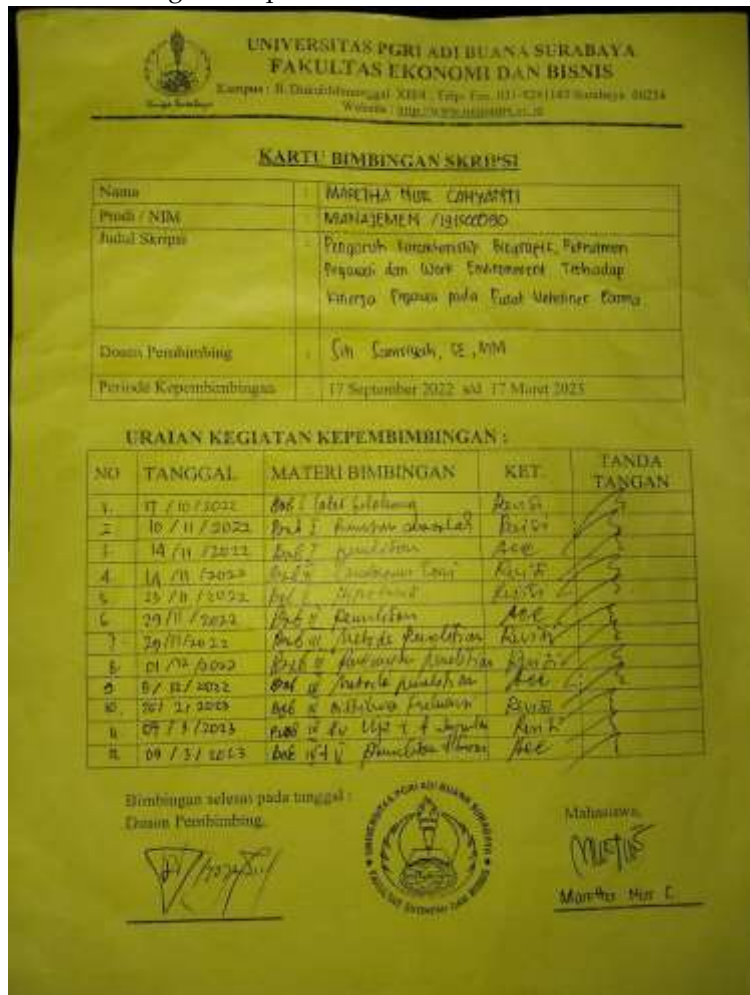 UNIVERSITAS PGRI ADI BUANA SURABAYA
FAKULTAS EKONOMI DAN BISNIS
Kampus : Jl. Dukuh Menanggal XII/4 Telp. Fax. 031-8281183 Surabaya 60234
Website :
KARTU BIMBINGAN SKRIPSI
Nama : MARETHA NUR CAHYANTI
Prodi / NIM : MANAJEMEN /
Judul Skripsi : Pengaruh Karakteristik Biografis, Rekrutmen
Pegawai dan Work Environment Terhadap
Kinerja Pegawai pada Pusat Veteriner Farma
Dosen Pembimbing : Siti Samsiyah, SE, MM
Periode Kepembimbingan : 17 September 2022 s/d 17 Maret 2023
URAIAN KEGIATAN KEPEMBIMBINGAN :
NO TANGGAL MATERI BIMBINGAN KET. TANDA TANGAN
1. 17 / 10 / 2022 Bab I latar belakang Revisi
2 10 / 11 / 2022 Bab I Revisi
3 14 / 11 / 2022 Bab I penulisan Acc
4 14 / 11 / 2022 Bab II Revisi
5 23 / 11 / 2022 Bab II Revisi
6 29 / 11 / 2022 Bab II Penulisan Acc
7 29/11/2022 Bab III Metode penelitian Revisi
8 01 / 12 / 2022 Bab III penelitian Revisi
9 8 / 12 / 2022 Bab III Metode penelitian Acc
10. 2023 Bab IV Revisi
11 09 / 3 / 2023 Bab IV Revisi
12 09 / 3 / 2023 Bab IV + V Penulisan Acc
Bimbingan selesai pada tanggal :
Dosen Pembimbing,
UNIVERSITAS PGRI ADI BUANA SURABAYA
FAKULTAS EKONOMI DAN BISNIS
Mahasiswa,
Maretha Nur C